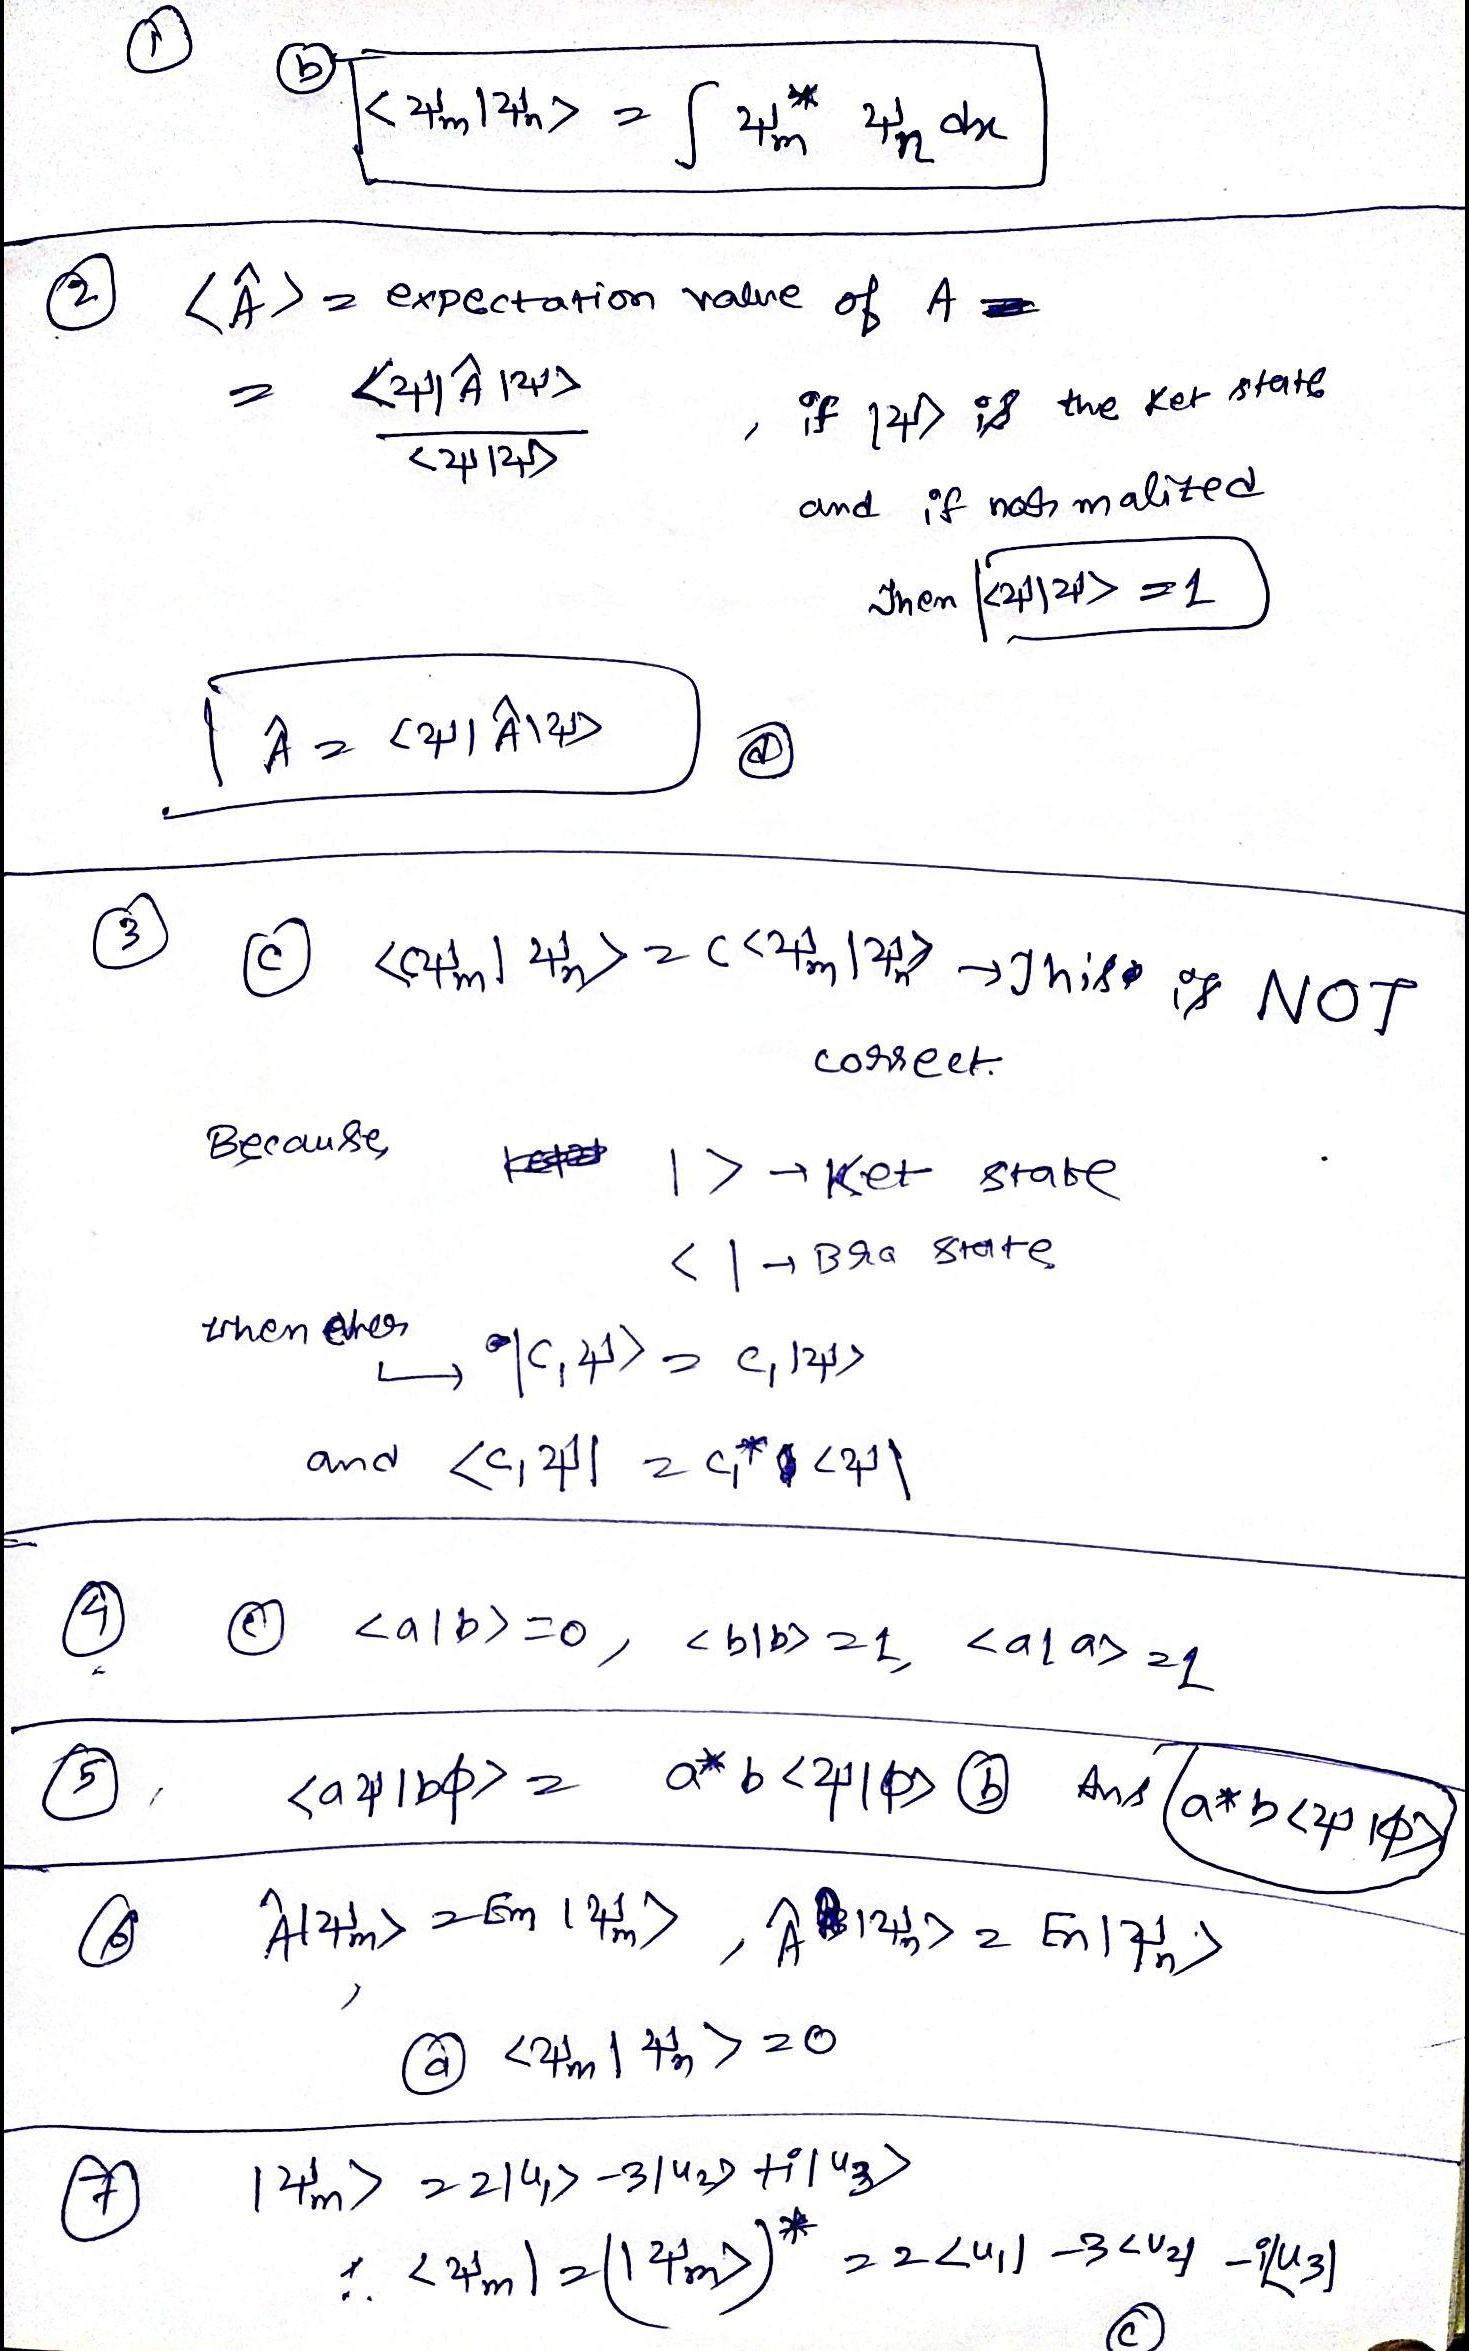 ①
ⓑ <ψm|ψn> = ∫ ψm* ψn dx
② <Â> = expectation value of A
= <ψ|Â|ψ> / <ψ|ψ> , if |ψ> is the ket state
and if normalized
Then <ψ|ψ> = 1
Â = <ψ|Â|ψ> ⓓ
③ ⓒ <cψm|ψn> = c<ψm|ψn> → This is NOT
correct.
Because, | > → Ket state
< | → Bra state
when ever
↳ |c₁ψ> = c₁|ψ>
and <c₁ψ| = c₁* <ψ|
④ ⓒ <a|b> = 0, <b|b> = 1, <a|a> = 1
⑤ <aψ|bφ> = a*b<ψ|φ> ⓑ Ans a*b<ψ|φ>
⑥ Â|ψm> = Em|ψm> , Â|ψn> = En|ψn>
ⓐ <ψm|ψn> = 0
⑦ |ψm> = 2|u₁> - 3|u₂> + i|u₃>
∴ <ψm| = (|ψm>)* = 2<u₁| - 3<u₂| - i<u₃|
ⓒ